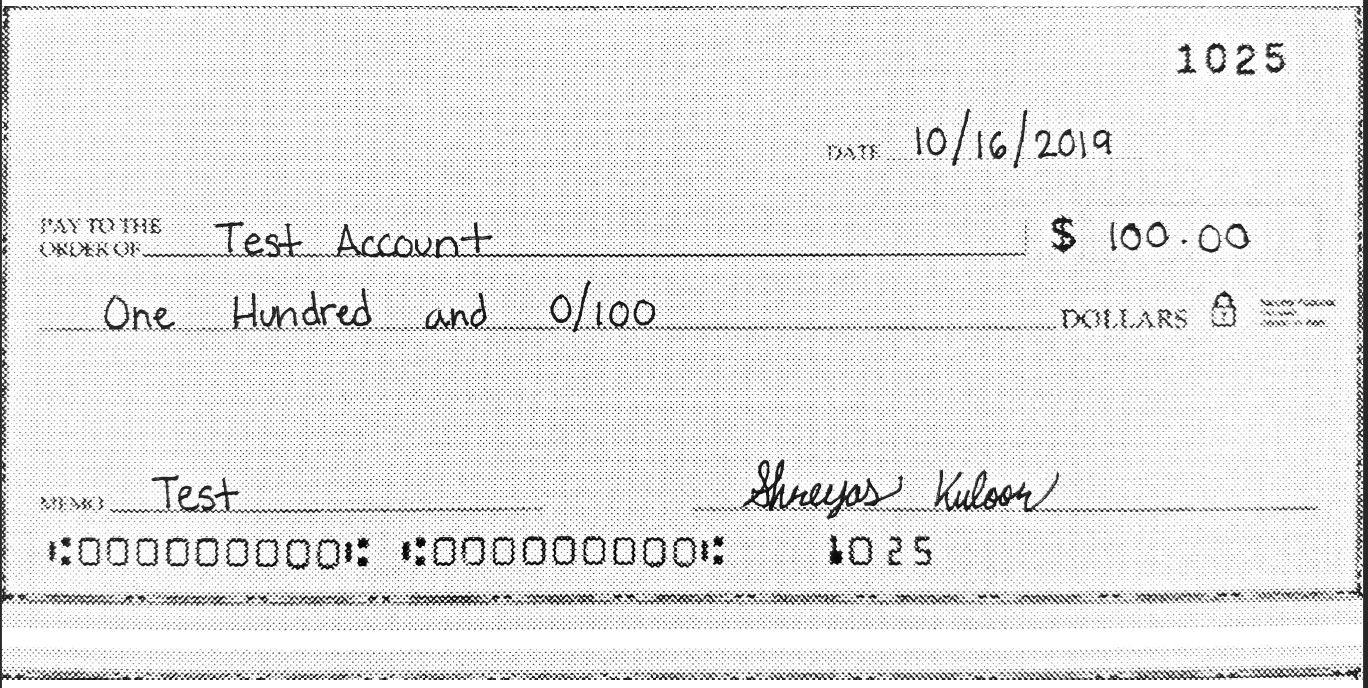 1025
DATE 10/16/2019
PAY TO THE
ORDER OF Test Account $ 100.00
One Hundred and 0/100 DOLLARS
MEMO Test Shreyas Kuloor
⑆000000000⑆ ⑆000000000⑆ 1025